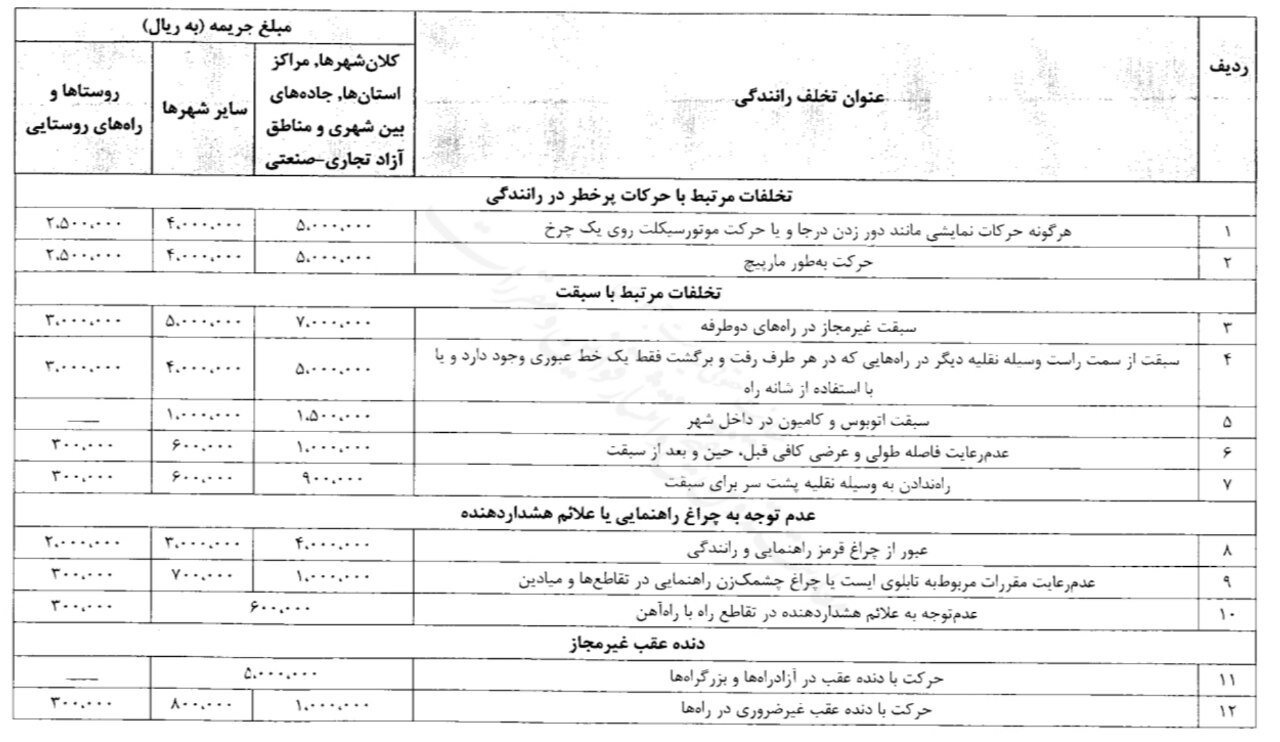 ردیف | عنوان تخلف رانندگی | مبلغ جریمه (به ریال)
کلان‌شهرها, مراکز استان‌ها, جاده‌های بین شهری و مناطق آزاد تجاری-صنعتی | سایر شهرها | روستاها و راه‌های روستایی
تخلفات مرتبط با حرکات پرخطر در رانندگی
۱ | هرگونه حرکات نمایشی مانند دور زدن درجا و یا حرکت موتورسیکلت روی یک چرخ | ۵,۰۰۰,۰۰۰ | ۴,۰۰۰,۰۰۰ | ۲,۵۰۰,۰۰۰
۲ | حرکت به‌طور مارپیچ | ۵,۰۰۰,۰۰۰ | ۴,۰۰۰,۰۰۰ | ۲,۵۰۰,۰۰۰
تخلفات مرتبط با سبقت
۳ | سبقت غیرمجاز در راه‌های دوطرفه | ۷,۰۰۰,۰۰۰ | ۵,۰۰۰,۰۰۰ | ۳,۰۰۰,۰۰۰
۴ | سبقت از سمت راست وسیله نقلیه دیگر در راه‌هایی که در هر طرف رفت و برگشت فقط یک خط عبوری وجود دارد و یا
با استفاده از شانه راه | ۵,۰۰۰,۰۰۰ | ۴,۰۰۰,۰۰۰ | ۳,۰۰۰,۰۰۰
۵ | سبقت اتوبوس و کامیون در داخل شهر | ۱,۵۰۰,۰۰۰ | ۱,۰۰۰,۰۰۰ | ——
۶ | عدم‌رعایت فاصله طولی و عرضی کافی قبل، حین و بعد از سبقت | ۱,۰۰۰,۰۰۰ | ۶۰۰,۰۰۰ | ۳۰۰,۰۰۰
۷ | راه‌ندادن به وسیله نقلیه پشت سر برای سبقت | ۹۰۰,۰۰۰ | ۶۰۰,۰۰۰ | ۳۰۰,۰۰۰
عدم توجه به چراغ راهنمایی یا علائم هشداردهنده
۸ | عبور از چراغ قرمز راهنمایی و رانندگی | ۴,۰۰۰,۰۰۰ | ۳,۰۰۰,۰۰۰ | ۲,۰۰۰,۰۰۰
۹ | عدم‌رعایت مقررات مربوط‌به تابلوی ایست یا چراغ چشمک‌زن راهنمایی در تقاطع‌ها و میادین | ۱,۰۰۰,۰۰۰ | ۷۰۰,۰۰۰ | ۳۰۰,۰۰۰
۱۰ | عدم‌توجه به علائم هشداردهنده در تقاطع راه با راه‌آهن | ۶۰۰,۰۰۰ | ۳۰۰,۰۰۰
دنده عقب غیرمجاز
۱۱ | حرکت با دنده عقب در آزادراه‌ها و بزرگراه‌ها | ۵,۰۰۰,۰۰۰ | ——
۱۲ | حرکت با دنده عقب غیرضروری در راه‌ها | ۱,۰۰۰,۰۰۰ | ۸۰۰,۰۰۰ | ۳۰۰,۰۰۰